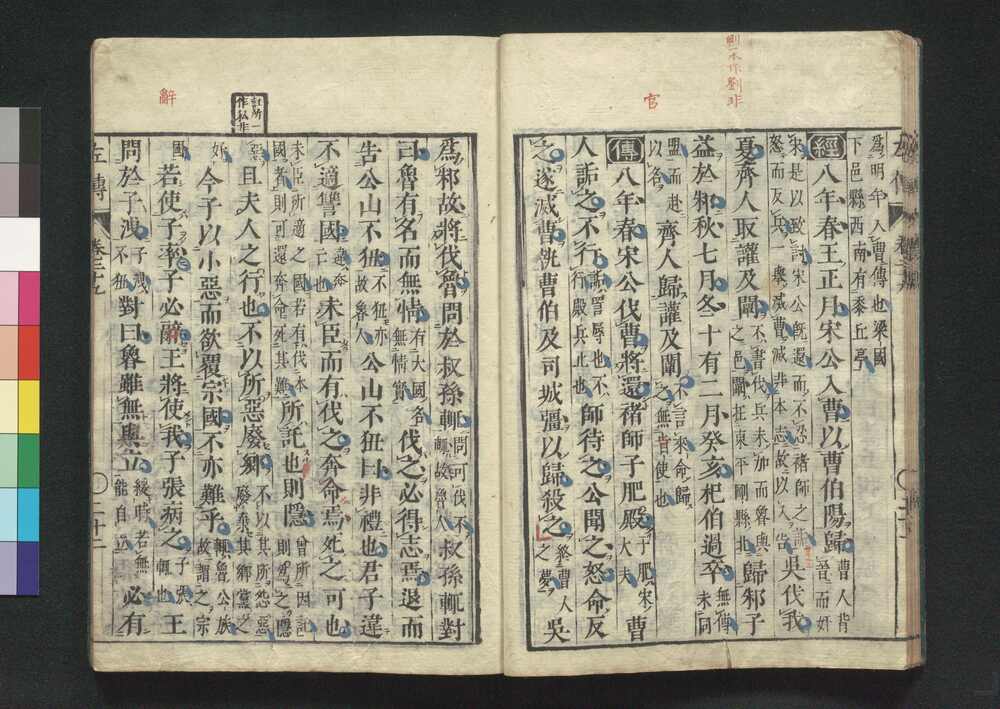 剛一本作劉非
官
爲明年入曹傳也梁國
下邑縣西南有黍丘亭
經八年春王正月宋公入曹以曹伯陽歸曹人背晉而奸
宋是以致討宋公既還而不忍禇師之詬怒而反兵一舉滅曹滅非本志故以入告吳伐我
夏齊人取讙及闡不書伐兵未加而魯與之邑闡在東平剛縣北歸邾子
益於邾秋七月冬十有二月癸亥杞伯過卒無傳未同
盟而赴以名齊人歸讙及闡不言來命歸之無旨使也
傳八年春宋公伐曹將還禇師子肥殿子肥宋大夫曹
人詬之不行詬詈辱也不行殿兵止也師待之公聞之怒命反
之遂滅曹執曹伯及司城彊以歸殺之終曹人之夢吳
辭
註所一作私非
爲邾故將伐魯問於叔孫輒問可伐不輒故魯人叔孫輒對
曰魯有名而無情有大國名無情實伐之必得志焉退而
告公山不狃不狃亦故魯人公山不狃曰非禮也君子違
不適讐國違奔亡也未臣而有伐之奔命焉死之可也
未臣所適之國若有伐本國者則可還奔命死其難所託也則隱曾所因託則爲之隱
惡且夫人之行也不以所惡廢鄉不以其所怨惡廢棄其鄉黨之
好今子以小惡而欲覆宗國不亦難乎輒魯公族故謂之宗
國若使子率子必辭王將使我子張病之子張輒也王
問於子洩子洩不狃對曰魯雖無與立緩時若無能自立必有
左傳 卷二十九 二十二